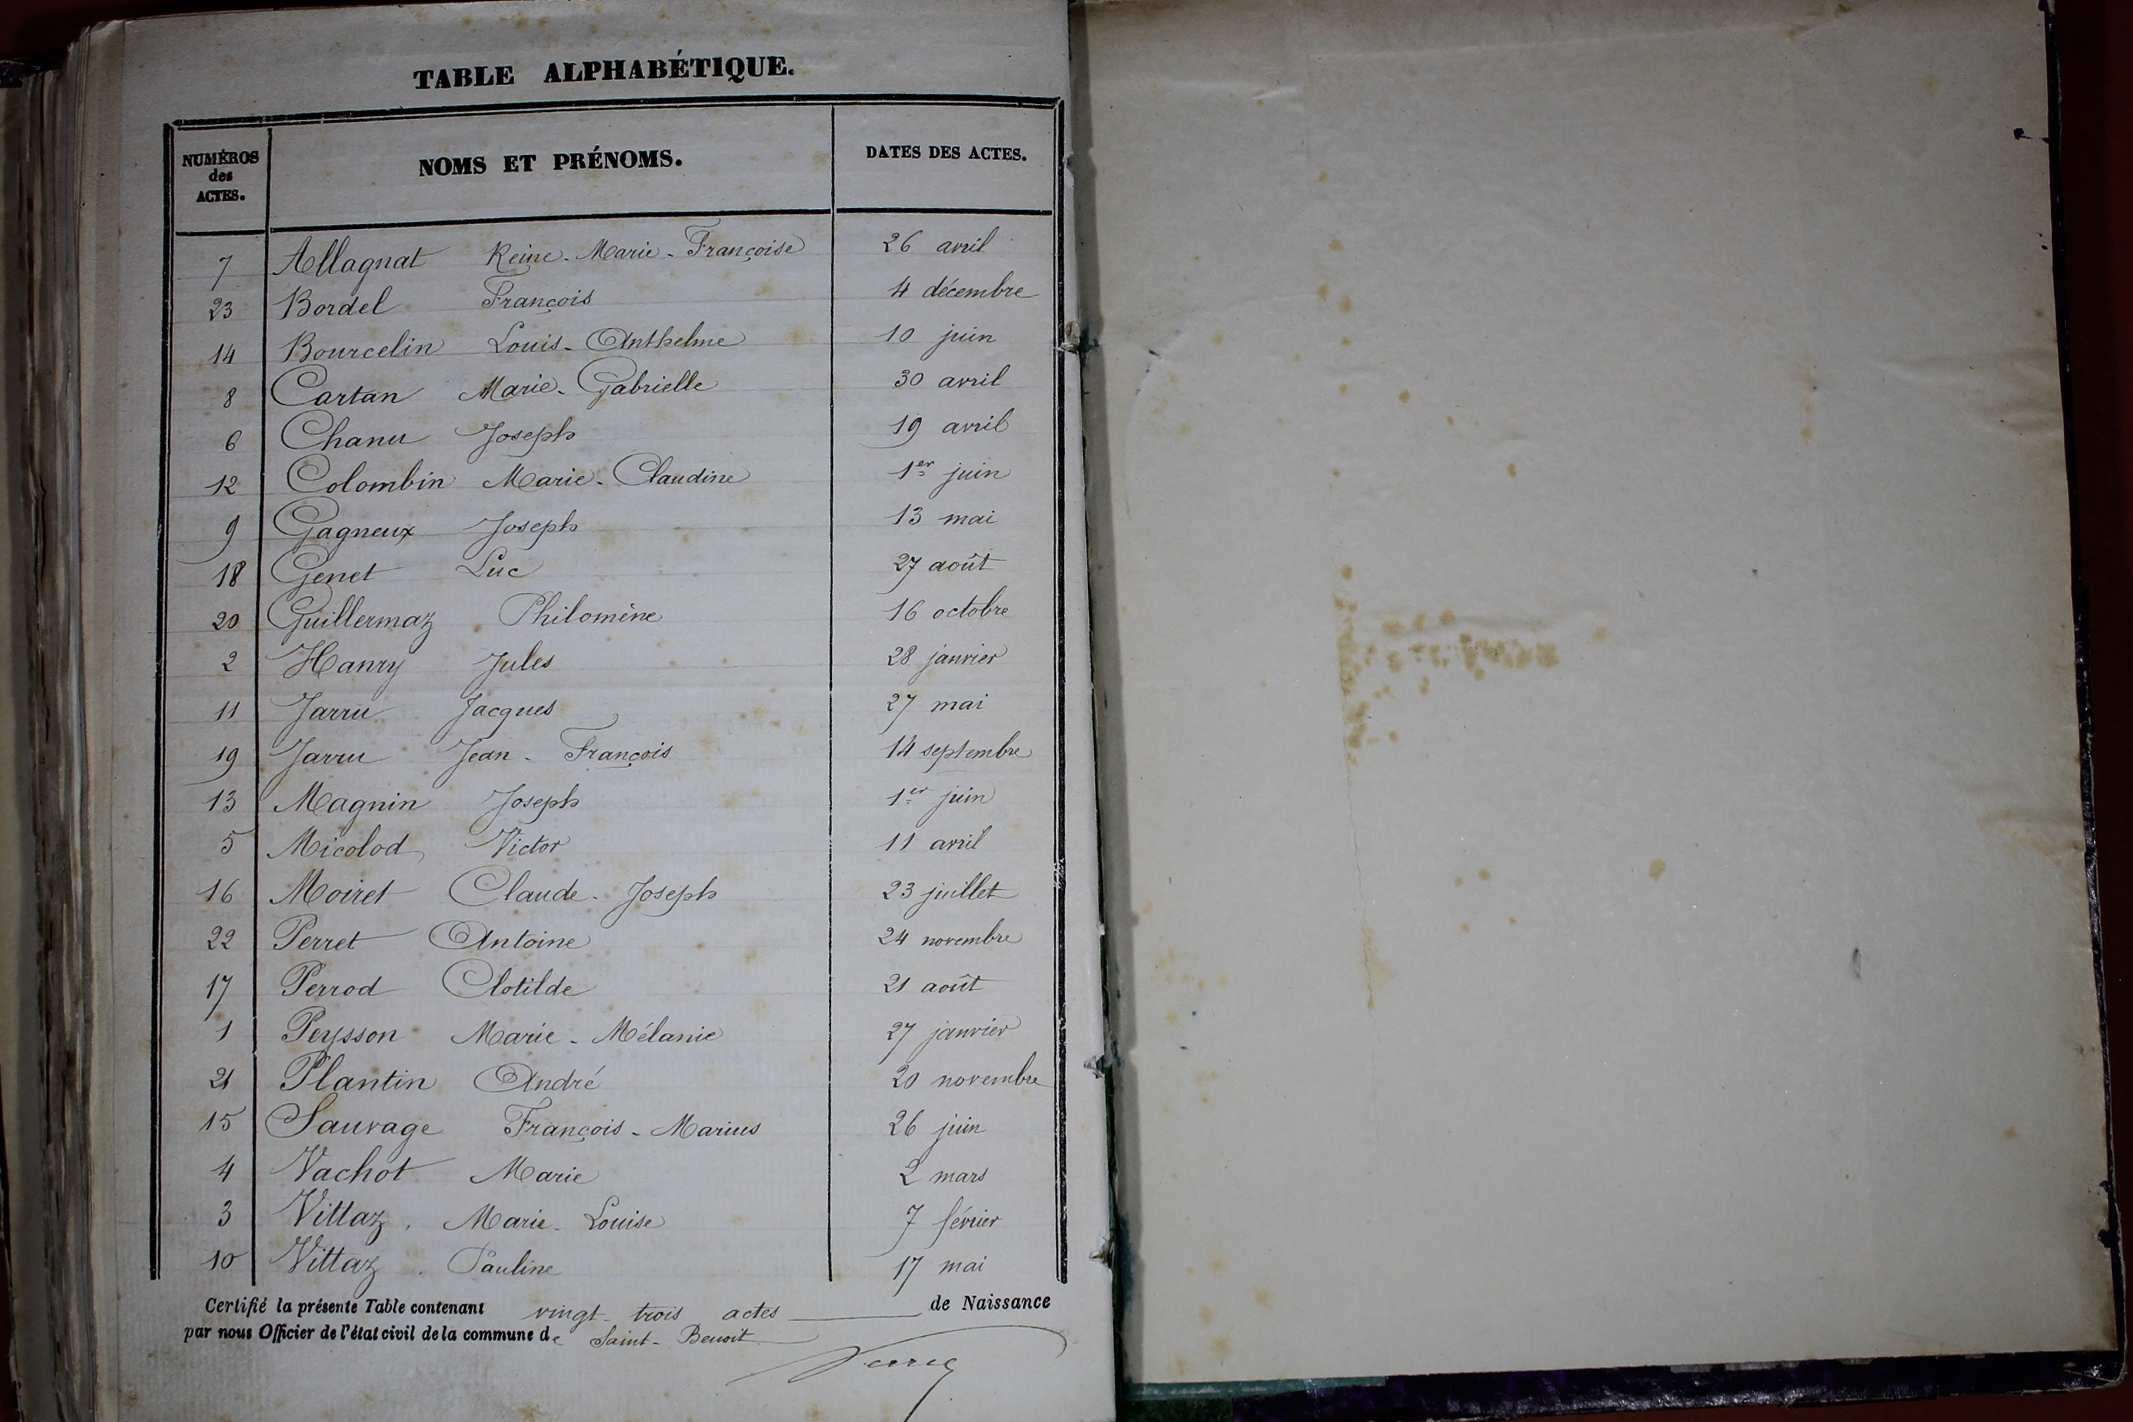 TABLE ALPHABÉTIQUE.
NUMÉROS des ACTES. NOMS ET PRÉNOMS. DATES DES ACTES.
7 Allagnat Reine-Marie-Françoise 26 avril
23 Bordel François 4 décembre
14 Bourcelin Louis-Anthelme 10 juin
8 Cartan Marie-Gabrielle 30 avril
6 Chanu Joseph 19 avril
12 Colombin Marie-Claudine 1er juin
9 Gagneux Joseph 13 mai
18 Genet Luc 27 août
20 Guillermaz Philomène 16 octobre
2 Hanry Jules 28 janvier
11 Jarru Jacques 27 mai
19 Jarru Jean-François 14 septembre
13 Magnin Joseph 1er juin
5 Micolod Victor 11 avril
16 Moiret Claude-Joseph 23 juillet
22 Perret Antoine 24 novembre
17 Perrod Clotilde 21 août
1 Peysson Marie-Mélanie 27 janvier
21 Plantin André 20 novembre
15 Sauvage François-Marius 26 juin
4 Vachot Marie 2 mars
3 Vittaz. Marie-Louise 7 février
10 Vittaz. Pauline 17 mai
Certifié la présente Table contenant vingt-trois actes de Naissance
par nous Officier de l'état civil de la commune de Saint-Benoit